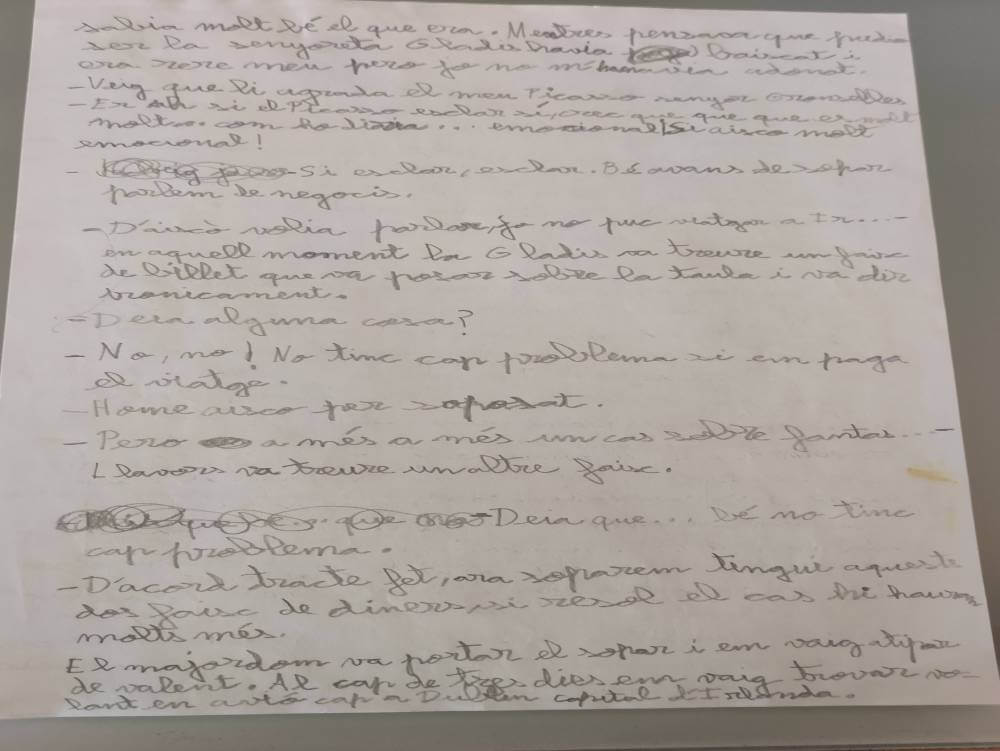 sabia molt bé el que era. Mentres pensava que podia
ser la senyoreta Gladis havia baixat i
era rere meu pero jo no m'havia adonat.
- Veig que li agrada el meu Picasso senyor
- Er ah si el Picasso esclar si, crec que que que es molt
molt... com ho diria... emocional! Si aixo molt
emocional!
- Si esclar, esclar. Bé avans de sopar
parlem de negocis.
- D'això volia parlar, jo no puc viatgar a Ir... -
en aquell moment la Gladis va treure un faix
de billet que va posar sobre la taula i va dir
ironicament.
- Deia alguna cosa?
- No, no! No tinc cap problema si em paga
el viatge.
- Home aixo per soposat.
- Pero a més a més un cas sobre fantas... -
Llavors va treure un altre faix.
- Deia que... bé no tinc
cap problema.
- D'acord tracte fet, ara soparem tingui aquests
dos faix de diners, si resol el cas hi haura
molts més.
El majordom va portar el sopar i em vaig atipar
de valent. Al cap de tres dies em vaig trovar vo-
lant en avió cap a Dublin capital d'Irlanda.